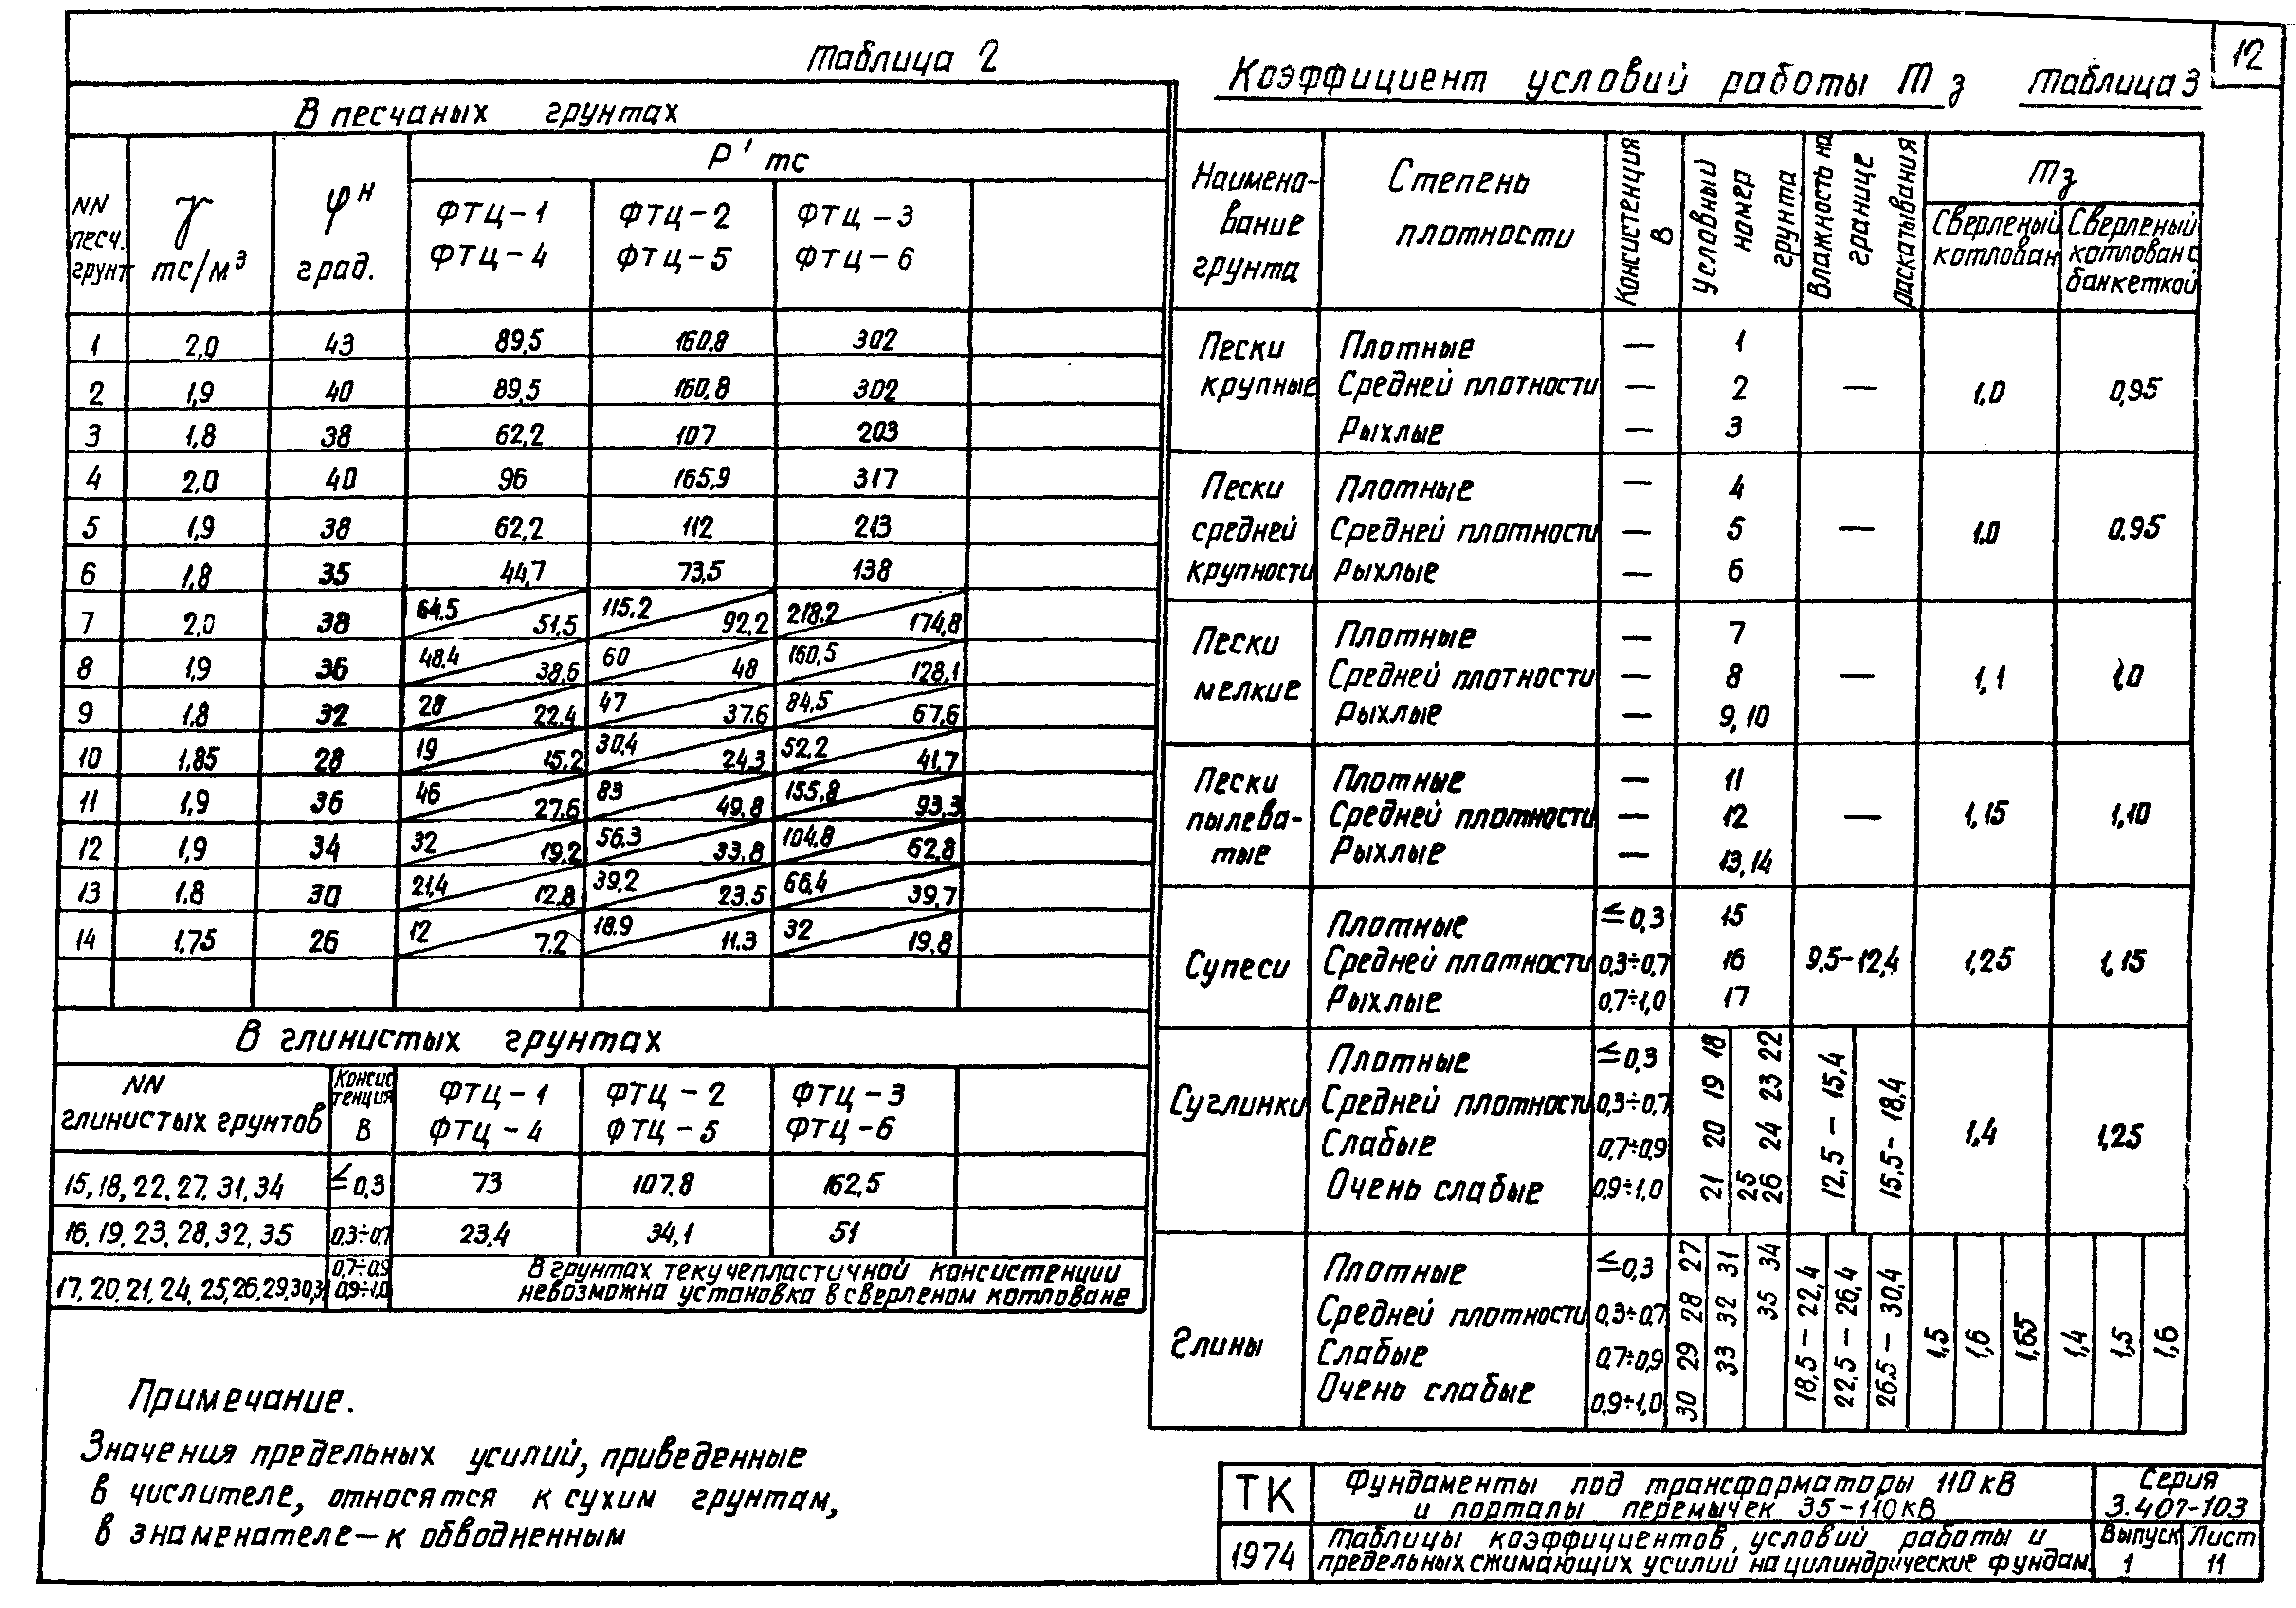 12
Таблица 2
В песчаных грунтах
NN песч. грунт
γ тс/м³
φᴴ град.
Р' тс
ФТЦ-1 ФТЦ-4
ФТЦ-2 ФТЦ-5
ФТЦ-3 ФТЦ-6
1 2,0 43 89,5 160.8 302
2 1,9 40 89,5 160,8 302
3 1,8 38 62,2 107 203
4 2,0 40 96 165,9 317
5 1,9 38 62,2 112 213
6 1,8 35 44,7 73,5 138
7 2,0 38 64.5 51,5 115.2 92,2 218.2 174,8
8 1,9 36 48.4 38,6 60 48 160,5 128,1
9 1,8 32 28 22,4 47 37.6 84,5 67,6
10 1,85 28 19 15,2 30.4 24,3 52,2 41,7
11 1,9 36 46 27,6 83 49,8 155,8 93,3
12 1,9 34 32 19,2 56.3 33,8 104.8 62,8
13 1.8 30 21,4 12,8 39,2 23.5 66,4 39,7
14 1.75 26 12 7.2 18.9 11.3 32 19,8
В глинистых грунтах
NN глинистых грунтов
Консистенция В
ФТЦ-1 ФТЦ-4
ФТЦ-2 ФТЦ-5
ФТЦ-3 ФТЦ-6
15, 18, 22, 27, 31, 34 ≤0,3 73 107,8 162,5
16, 19, 23, 28, 32, 35 0,3÷0,7 23,4 34,1 51
17, 20, 21, 24, 25, 26, 29, 30, 0,7÷0,9 0,9÷1,0
В грунтах текучепластичной консистенции
невозможна установка в сверленом котловане
Примечание.
Значения предельных усилий, приведенные
в числителе, относятся к сухим грунтам,
в знаменателе – к обводненным
Коэффициент условий работы m з Таблица 3
Наименование грунта
Степень плотности
Консистенция В
Условный номер грунта
Влажность на границе раскатывания
mз
Сверленый котлован
Сверленый котлован с банкеткой
Пески крупные
Плотные — 1
Средней плотности — 2 — 1,0 0,95
Рыхлые — 3
Пески средней крупности
Плотные — 4
Средней плотности — 5 — 1.0 0.95
Рыхлые — 6
Пески мелкие
Плотные — 7
Средней плотности — 8 — 1,1 1,0
Рыхлые — 9, 10
Пески пылеватые
Плотные — 11
Средней плотности — 12 — 1,15 1,10
Рыхлые — 13, 14
Супеси
Плотные ≤0,3 15
Средней плотности 0,3÷0,7 16 9,5–12,4 1,25 1,15
Рыхлые 0,7÷1,0 17
Суглинки
Плотные ≤0,3 18 22
Средней плотности 0,3÷0,7 19 23
Слабые 0,7÷0,9 20 24
Очень слабые 0,9÷1,0 21 25 26
12,5 – 15,4
15,5 – 18,4
1,4 1,25
Глины
Плотные ≤0,3 27 31 34
Средней плотности 0,3÷0,7 28 32 35
Слабые 0,7÷0,9 29 33
Очень слабые 0,9÷1,0 30
18,5 – 22,4
22,5 – 26,4
26.5 – 30,4
1,5 1,6 1,65 1,4 1,5 1,6
ТК
1974
Фундаменты под трансформаторы 110 кВ
и порталы перемычек 35-110 кВ
Таблицы коэффициентов, условий работы и
предельных сжимающих усилий на цилиндрические фундам.
Серия
3.407-103
Выпуск 1
Лист 11